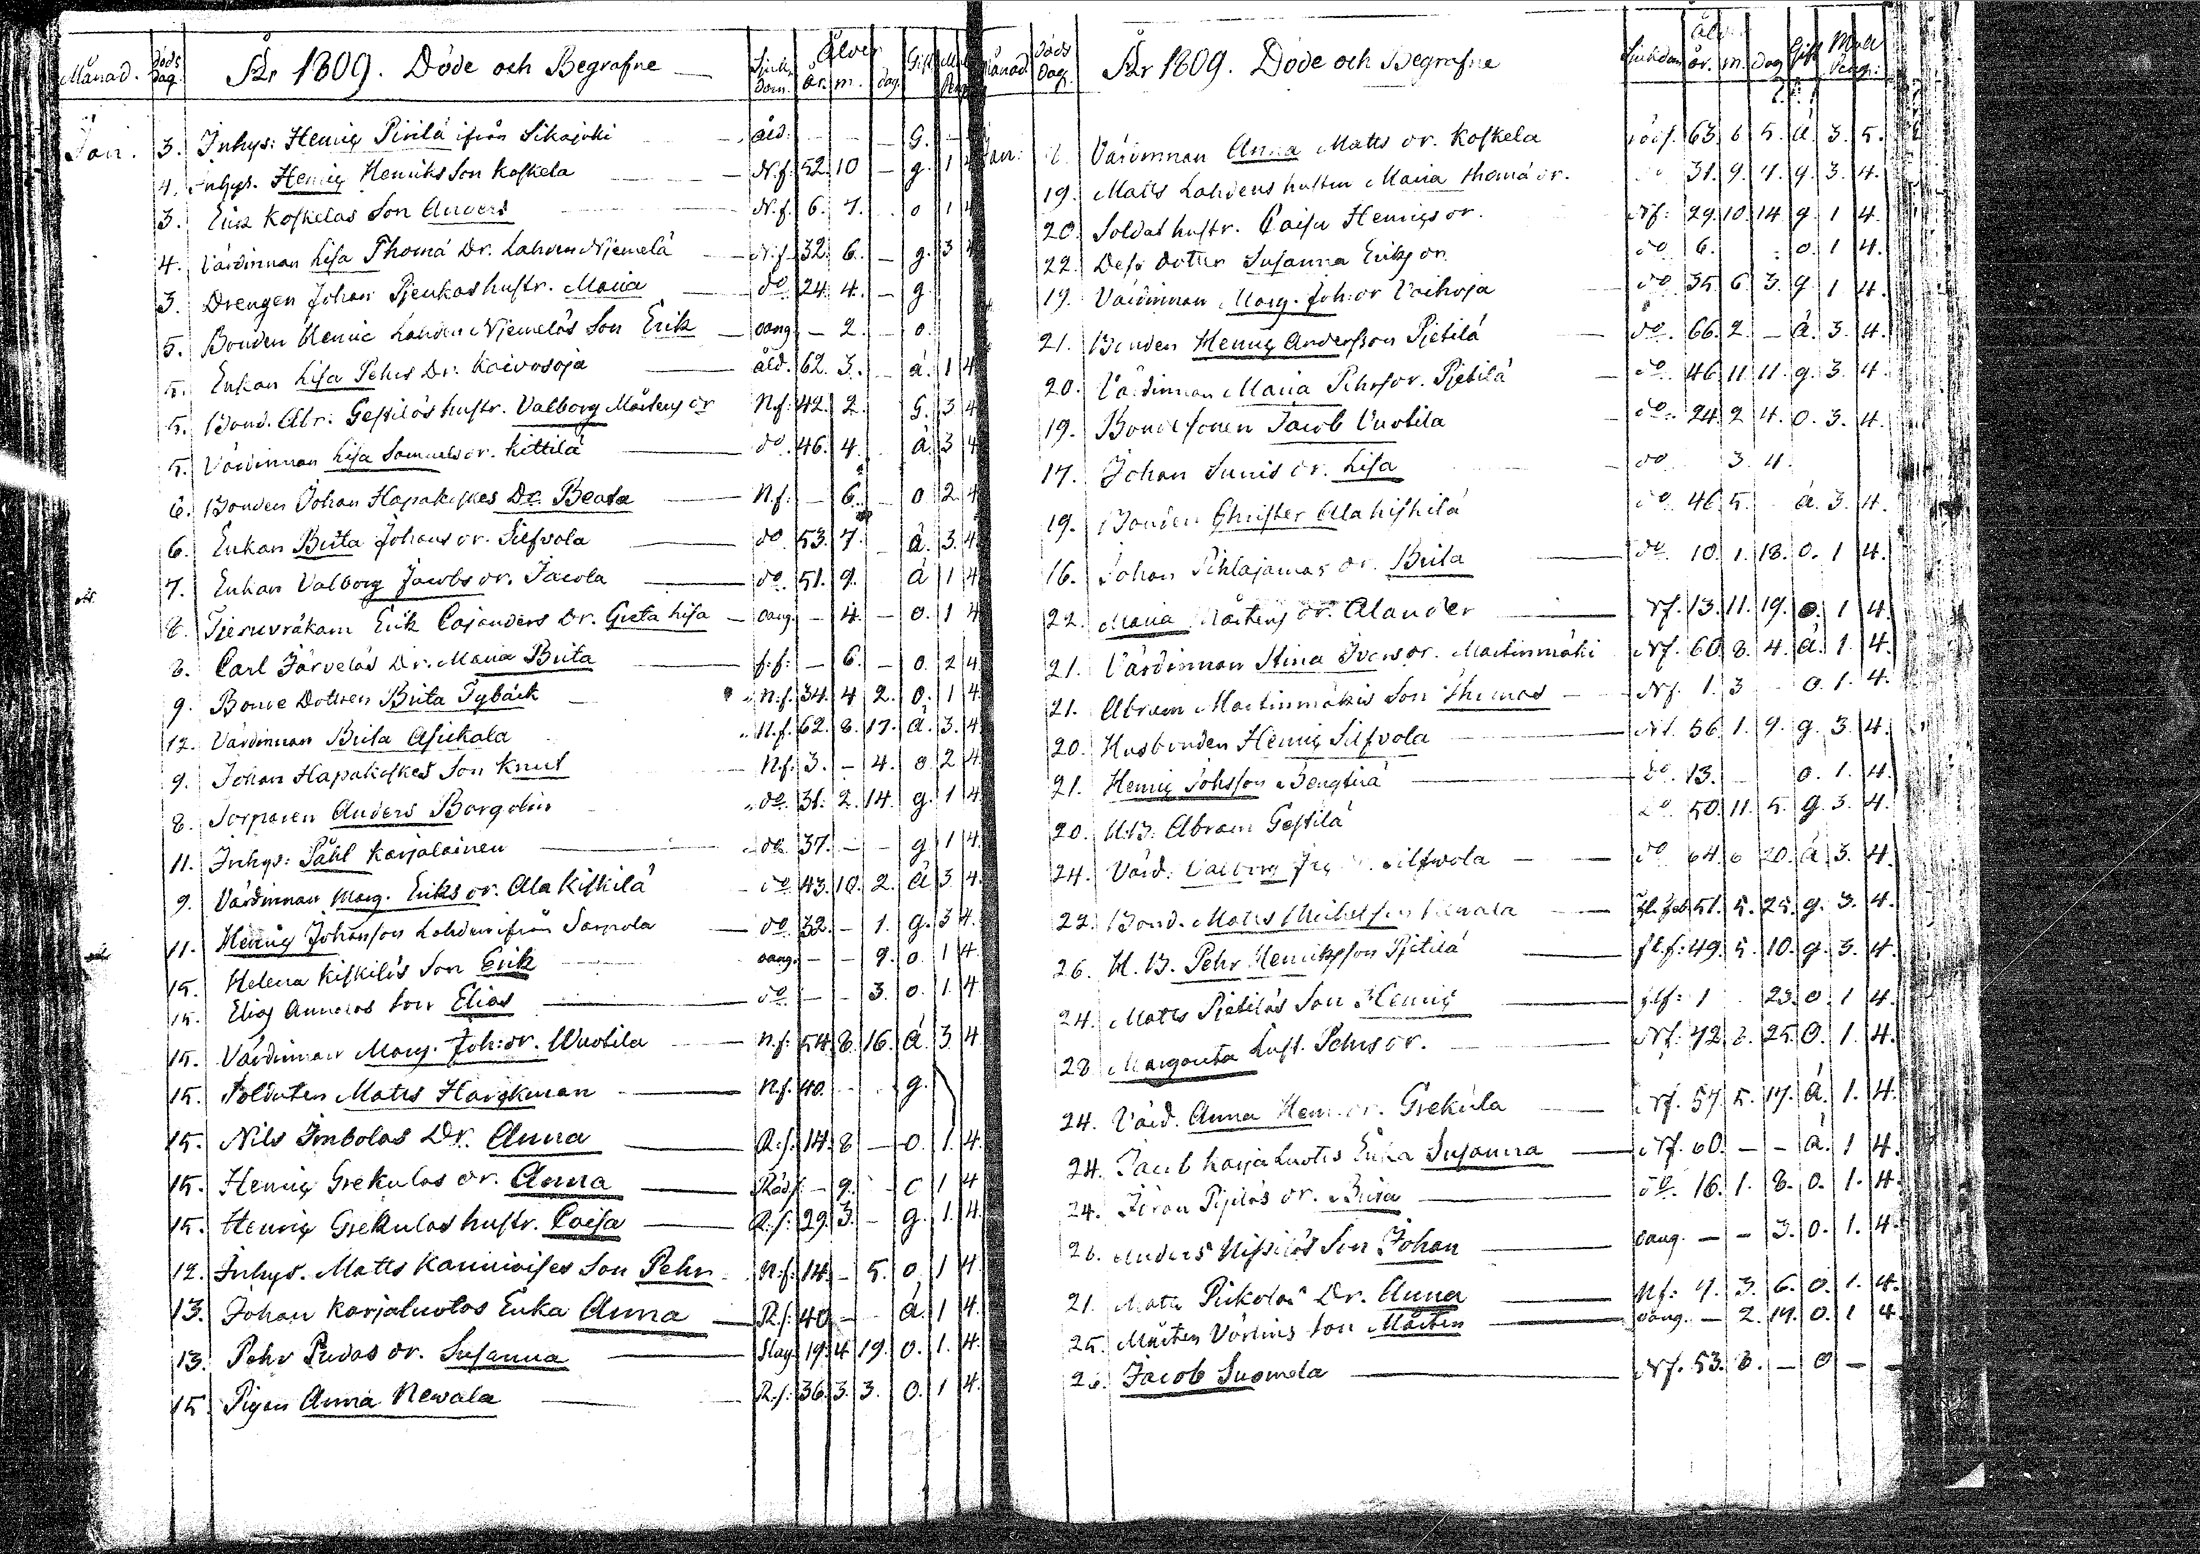 Månad. döds dag. År 1809. Döde och Begrafne Sjuk dom. Ålder år. m. dag. Gift
Jan. 3. Inhys: Henric Pirilä ifrån Sikajoki åld. – – – G. –
4. Inhys. Henric Henriks Son Koskela N.f. 52. 10 – g. 1 4
3. Eric Koskelas Son Anders N.f. 6. 7. o 1 4
4. Värdinnan Lisa Thomä Dr. Lahden Njemelä N.f. 32. 6. – g. 3 4
3. Drengen Johan Pjenkas hustr. Maria do 24. 4. – g
5. Bonden Henric Lahden Njemeläs Son Erik oang. – 2. – o
5. Enkan Lisa Pehrs Dr. Kaivosoja åld. 62. 3. á. 1 4
5. Bond. Abr. Gestiläs hustr. Valborg Mårtens dr N.f. 42. 2. G. 3 4
5. Värdinnan Lisa Samuels dr. Kittilä do. 46. 4. á. 3 4
6. Bonden Johan Hapakoskes Dr. Beata N.f. – 6. – o 2 4
6. Enkan Brita Johans dr. Silfvola do. 53. 7. á. 3. 4
7. Enkan Valborg Jacobs dr. Jacola do. 51. 9. á 1 4
8. Erik Cajanders Dr. Greta Lisa oang. – 4. – o. 1 4
8. Carl Järveläs Dr. Maria Brita f.f. – 6. – o. 2 4
9. Bonde Dottren Brita Nybäck N.f. 34. 4 2. O. 1 4
12. Värdinnan Brita Asickala N.f. 62. 8. 17. á. 3. 4
9. Johan Hapakoskes Son Knut N.f. 3. – 4. o. 2 4
8. Torparen Anders Borgolin do. 31. 2. 14. g. 1 4
11. Inhys: Påhl Karjalainen do. 37. – – g 1 4
9. Värdinnan Marg. Eriks dr. Ala Kiskilä do. 43. 10. 2. á 3 4
11. Henric Johansson Lahden ifrån Sarpola do. 32. – 1. g. 3 4.
15. Helena Kiskiläs Son Erik oang. – – 9. o. 1 4
15. Elias Annolas Son Elias do. – – 3. o. 1. 4
15. Värdinnan Marg. Joh:dr. Wuotila N.f. 54. 8. 16. á. 3 4
15. Soldaten Matts Hargkman N.f. 40. g.
15. Nils Imbolas Dr. Anna R.f. 14. 8 – o. 1. 4.
15. Henric Grekulas dr. Anna Röd.f. – 9. o 1 4
15. Henric Grekulas hustr. Caisa R.f. 29. 3. – g. 1. 4.
12. Inhys. Matts Kanniaises Son Pehr N.f. 14. – 5. o. 1 4
13. Johan Karjaluotos Enka Anna R.f. 40 – á. 1 4.
13. Pehr Pudas dr. Susanna Slag. 19. 4. 19. O. 1. 4.
15. Pigan Anna Newala R.f. 36. 3. 3. O. 1 4.
Månad. Döds Dag. År 1809. Döde och Begrafne Sjukdom år. m. dag Gift
Jan: Värdinnan Anna Matts dr. Koskela röd.f. 63. 6 5. á. 3. 5.
19. Matts Lahdens hustru Maria Thomä dr. 31. 9. 4. g. 3. 4.
20. Soldat hustr. Caisa Henrics dr. Nf: 29. 10. 14 g. 1 4.
22. Dess dotter Susanna Eriks dr. do 6. o. 1 4.
19. Värdinnan Marg. Joh:dr Vaihoja do 35. 6. 3. g 1 4.
21. Bonden Henric Andersson Pjetilä do. 66. 2. – á. 3. 4.
20. Värdinnan Maria Pehrs dr. Pjetilä do. 46. 11. 11. g. 3. 4.
19. Bonde Sonen Jacob Vuotila do. 24. 2 4. O. 3. 4.
17. Johan Sunis dr. Lisa do 3. 4.
19. Bonden Christer Alakiskilä do. 46. 5. á. 3. 4.
16. Johan Pihlajamas dr. Brita do. 10. 1. 18. O. 1 4.
22. Maria Mårtens dr. Alander Nf. 13. 11. 19. o. 1 4.
21. Värdinnan Stina Ivars dr. Martinmäki Nf. 60. 8. 4. á. 1. 4.
21. Abram Martinmäkis Son Thomas Nf. 1. 3 – O. 1. 4.
20. Husbonden Henric Silfvola Nf. 56. 1. 9. g. 3. 4.
21. Henric Johsson Bengtilä do. 13. – o. 1. 4.
20. H.B. Abram Gestilä do. 50. 11. 5. g. 3. 4.
24. Värd. Valborg Silfwola do 64. 6 20. á 3. 4.
22. Bond. Matts Michelsson 51. 5. 25. g. 3. 4.
26. H.B. Pehr Henriksson Pjetilä fl.f: 49. 5. 10. g. 3. 4.
24. Matts Pjetiläs Son Henric fl.f: 1 23. o. 1 4.
28. Margareta Pehrs dr. Nf: 42. 8. 25. O. 1. 4.
24. Värd. Anna Henr. dr. Grekula Nf. 57. 5. 17. á. 1. 4.
24. Jacob Karjaluotos Enka Susanna Nf. 60. – – á. 1 4.
24. Jöran Pipiläs dr. Brita do. 16. 1. 8. O. 1. 4.
26. Anders Nissiläs Son Johan oang. – – 3. O. 1. 4.
21. Matts Pukolas Dr. Anna Nf: 4. 3. 6. o. 1. 4.
25. Mårten Vörlins Son Mårten oang. – 2. 19. O. 1 4.
26. Jacob Suomela Nf. 53. 8. – o – –